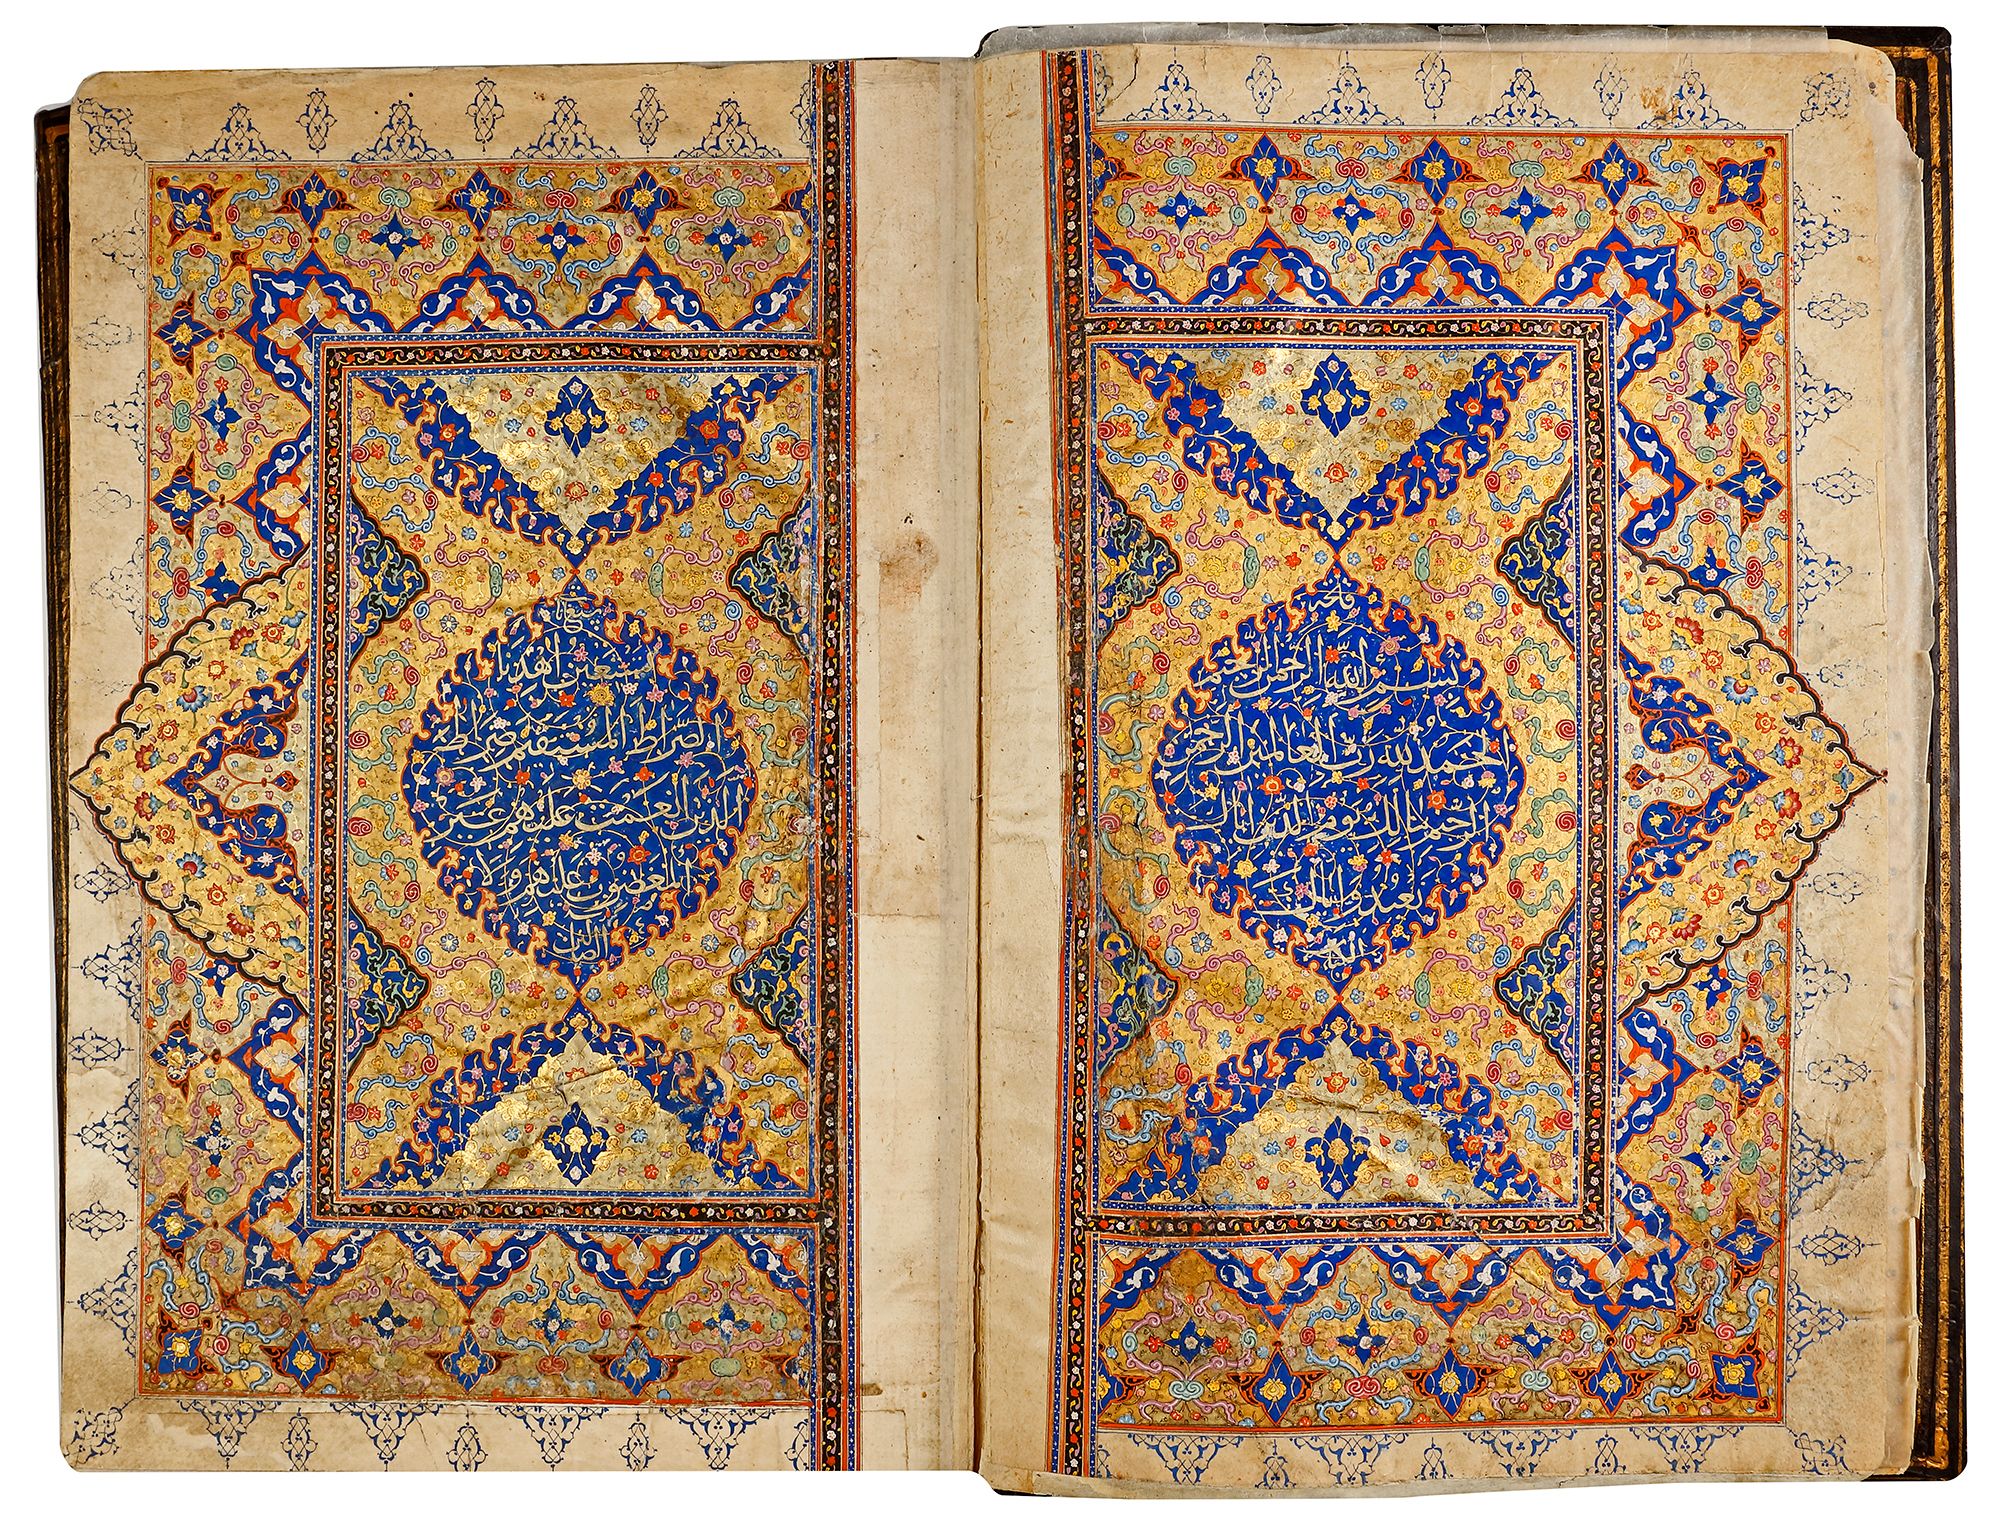 فاتحه
بسم الله الرحمن الرحيم
الحمد لله رب العالمين الرحمن
الرحيم مالك يوم الدين اياك
نعبد واياك
نستعين اهدنا
الصراط المستقيم صراط
الذين انعمت عليهم غير
المغضوب عليهم ولا
الضالين